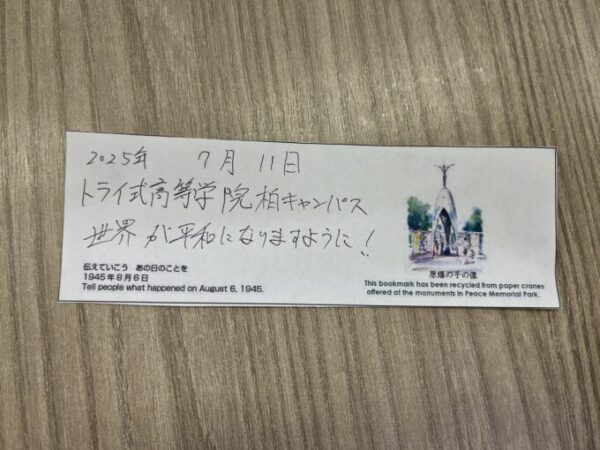 2025年 7月 11日
トライ式高等学院柏キャンパス
世界が平和になりますように!
伝えていこう あの日のことを
1945年8月6日
Tell people what happened on August 6, 1945.
原爆の子の像
This bookmark has been recycled from paper cranes
offered at the monuments in Peace Memorial Park.